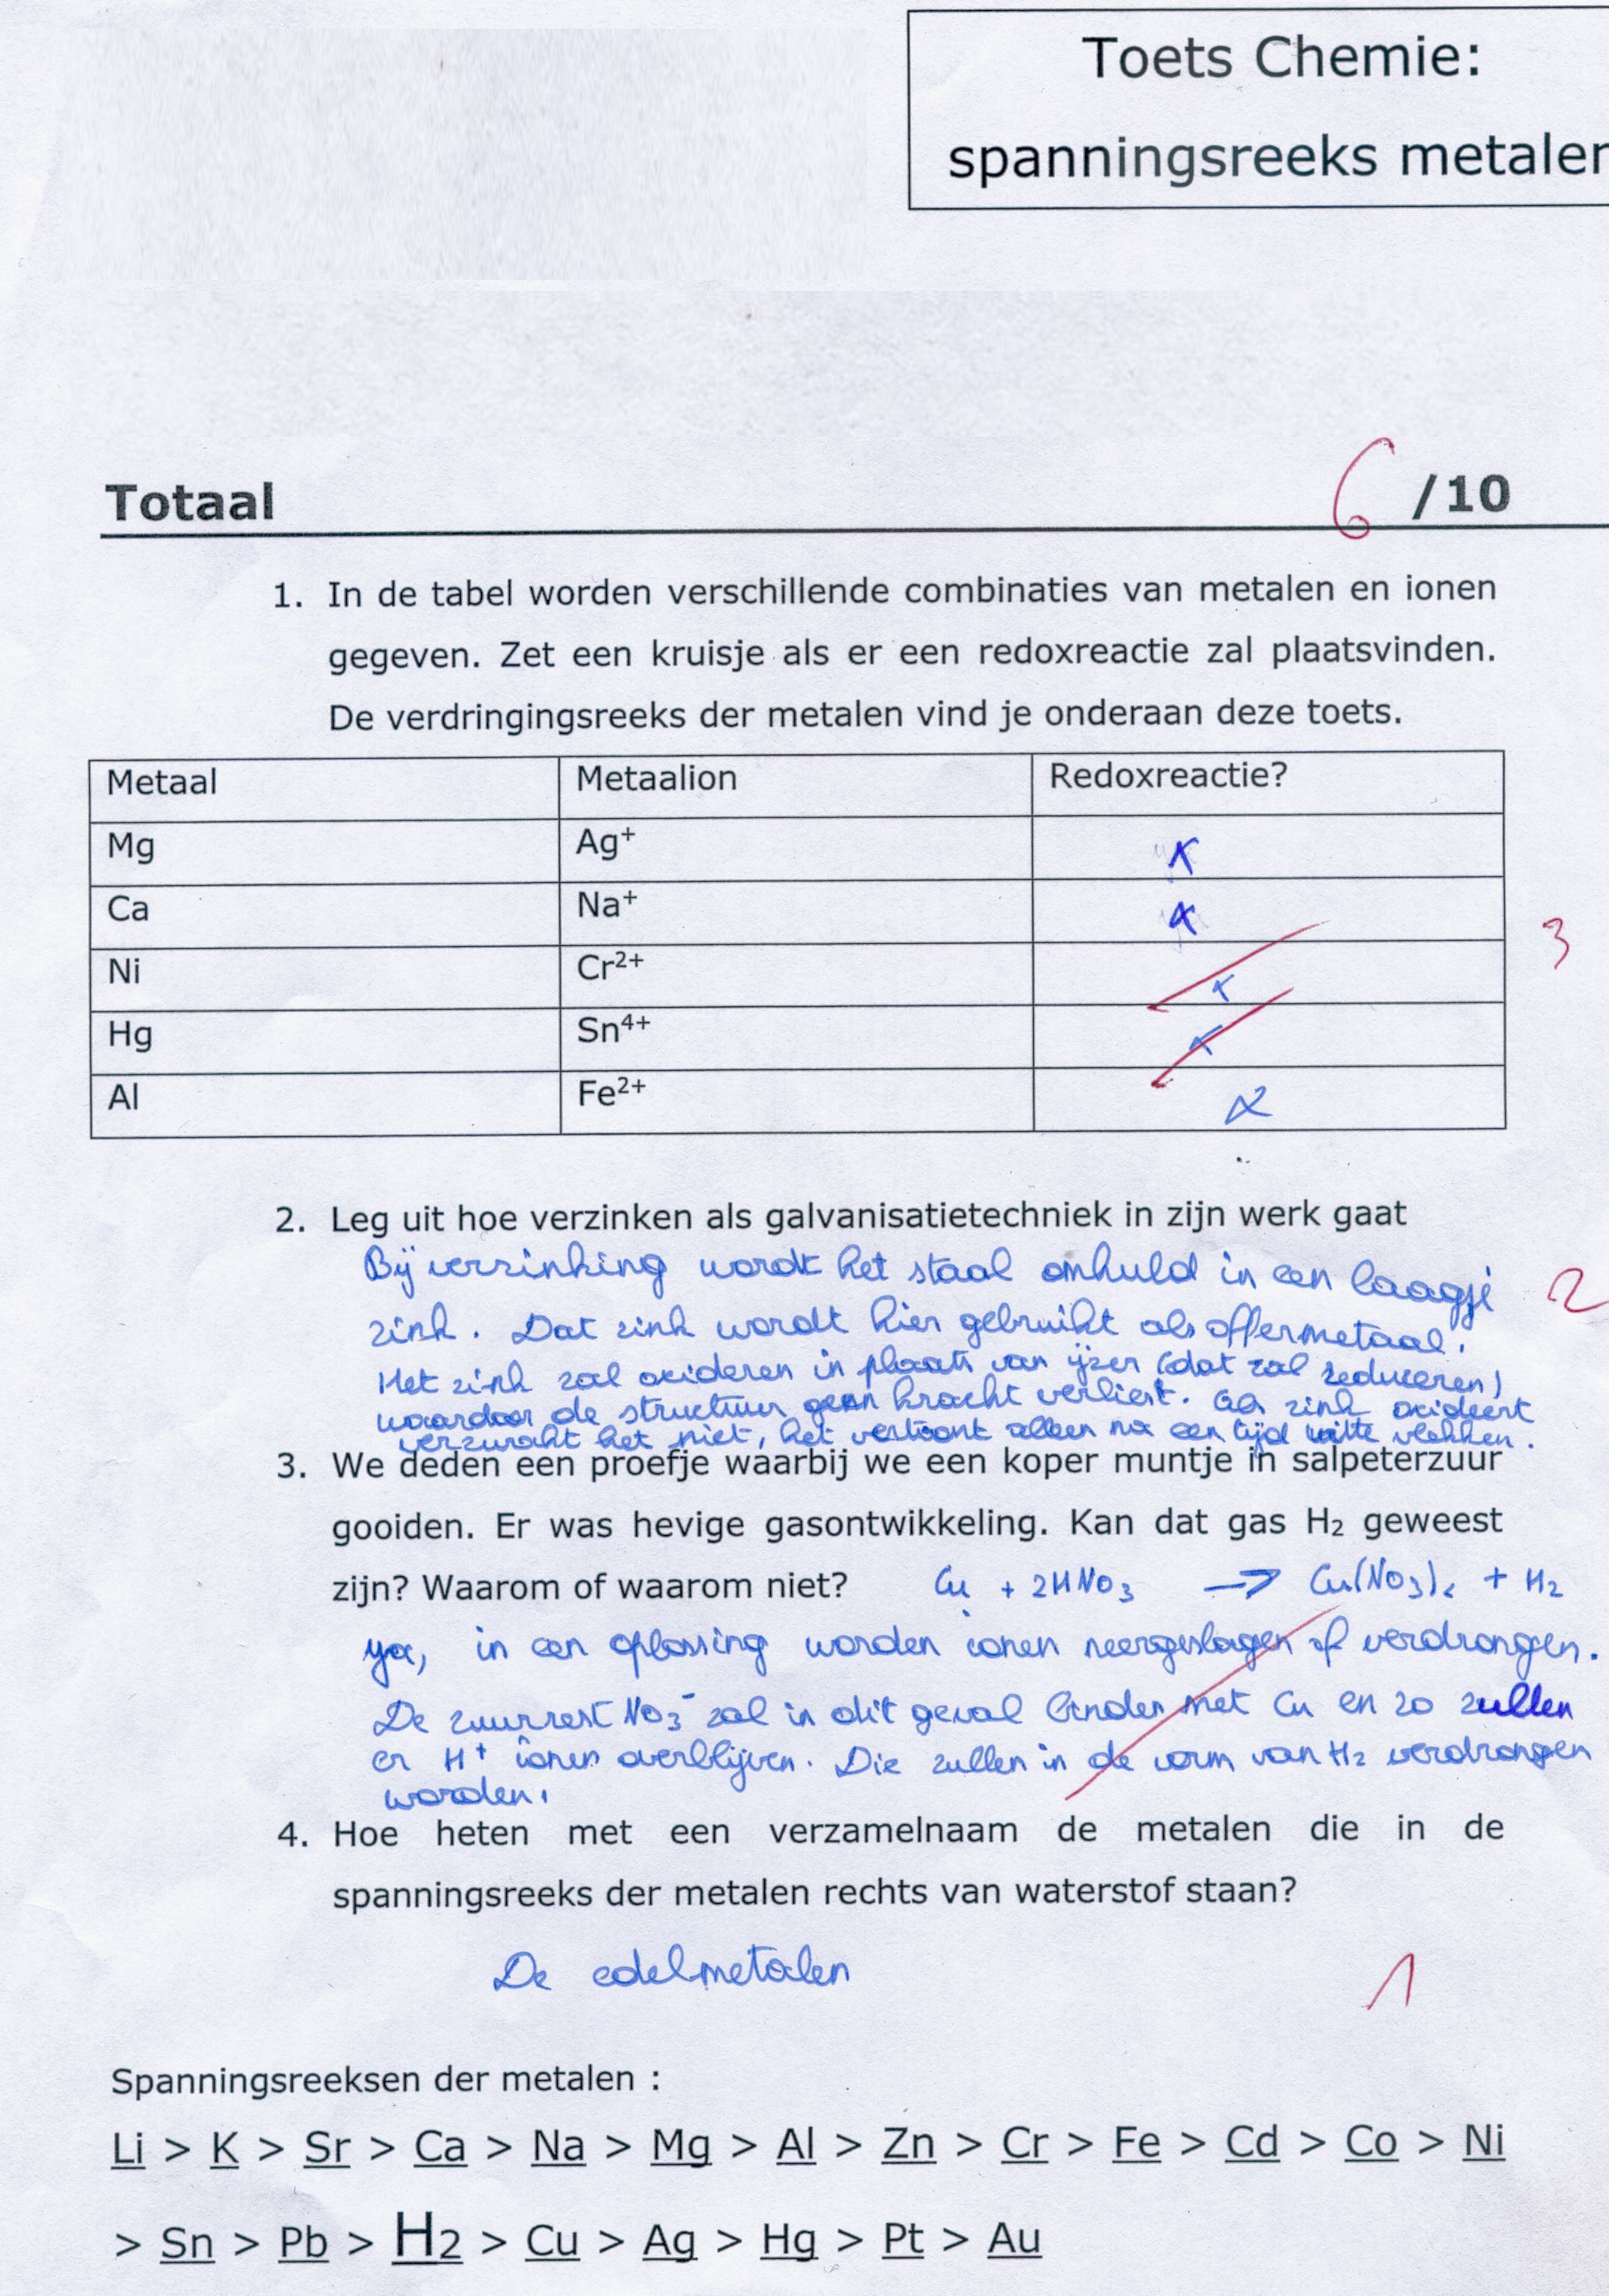 Toets Chemie:
spanningsreeks metalen
Totaal 6 /10
1. In de tabel worden verschillende combinaties van metalen en ionen
gegeven. Zet een kruisje als er een redoxreactie zal plaatsvinden.
De verdringingsreeks der metalen vind je onderaan deze toets.
Metaal Metaalion Redoxreactie?
Mg Ag⁺ x
Ca Na⁺ x
Ni Cr²⁺ x 3
Hg Sn⁴⁺ x
Al Fe²⁺ x
2. Leg uit hoe verzinken als galvanisatietechniek in zijn werk gaat
Bij verzinking wordt het staal omhuld in een laagje 2
zink. Dat zink wordt hier gebruikt als offermetaal.
Het zink zal oxideren in plaats van ijzer (dat zal reduceren)
waardoor de structuur geen kracht verliest. Als zink oxideert
verzwakt het niet, het vertoont alleen na een tijd witte vlekken.
3. We deden een proefje waarbij we een koper muntje in salpeterzuur
gooiden. Er was hevige gasontwikkeling. Kan dat gas H₂ geweest
zijn? Waarom of waarom niet? Cu + 2HNO₃ → Cu(NO₃)₂ + H₂
ja, in een oplossing worden ionen neergeslagen of verdrongen.
De zuurrest NO₃⁻ zal in dit geval binden met Cu en zo zullen
er H⁺ ionen overblijven. Die zullen in de vorm van H₂ verdrongen
worden.
4. Hoe heten met een verzamelnaam de metalen die in de
spanningsreeks der metalen rechts van waterstof staan?
De edelmetalen 1
Spanningsreeksen der metalen :
Li > K > Sr > Ca > Na > Mg > Al > Zn > Cr > Fe > Cd > Co > Ni
> Sn > Pb > H₂ > Cu > Ag > Hg > Pt > Au